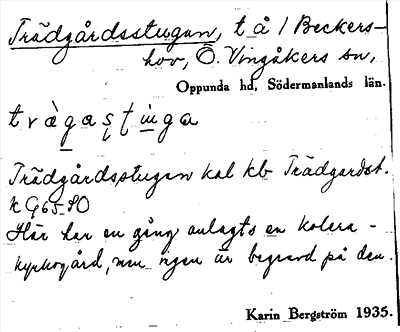 Trädgårdsstugan, t å / Beckers-
hov, Ö. Vingåkers sn,
Oppunda hd, Södermanlands län.
Trädgårdsstugan kal kb Trädgårdst.
k G 65 SO
Här har en gång anlagts en kolera-
kyrkogård, men ingen är begravd på den.
Karin Bergström 1935.